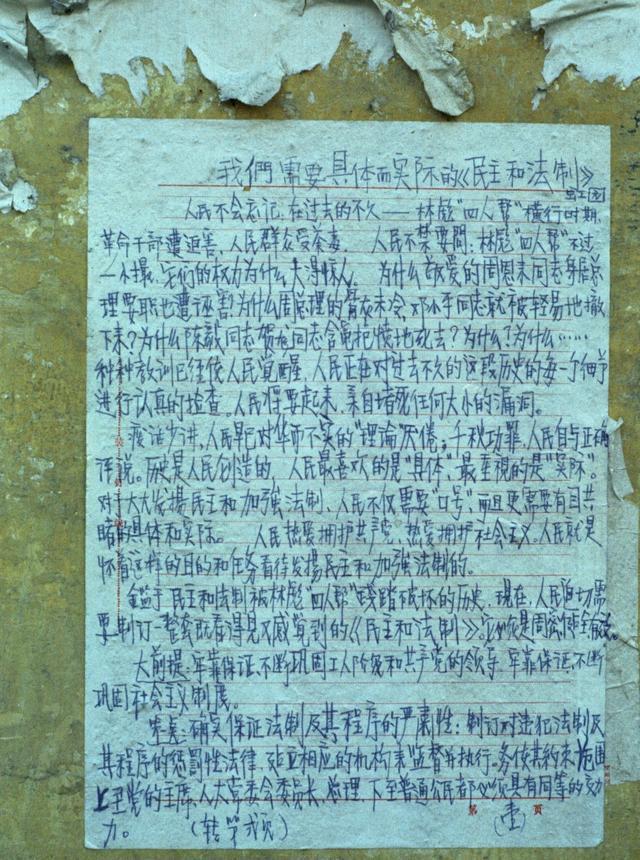 我們需要具体而实际的《民主和法制》
人民不会忘记,在过去的不久——林彪"四人帮"横行时期,
革命干部遭迫害,人民群众受荼毒。人民不禁要問:林彪"四人帮"不过
一小撮,它们的权力为什么大得惊人。为什么敬爱的周恩来同志身居总
理要职也遭诬害?为什么周总理的骨灰未冷,邓小平同志就被轻易地撤
下来?为什么陈毅同志贺龙同志含冤抱恨地死去?为什么?为什么……
种种教训已往使人民覚醒,人民正在对过去不久的这段历史的每一个细节
进行认真的检查。人民将要起来,亲自堵死任何大小的漏洞。
废话少讲,人民早已对华而不实的"理論"厌倦;千秋功罪,人民自与正确
评说。历史是人民创造的,人民最喜欢的是"具体",最重視的是"实际"。
对于大大发揚民主和加強法制,人民不仅需要"口号",而且更需要有目共
睹的具体和实际。人民热爱拥护共产党,热爱拥护社会主义,人民就是
怀着这样的目的和任务看待发揚民主和加強法制的。
鉴于民主和法制被林彪"四人帮"践踏破坏的历史,现在,人民迫切需
要制订一整套既看得見又感覚到的《民主和法制》,它必须是周密健全
大前提:牢靠保证,不断巩固工人阶级和共产党的领导,牢靠保证,不断
巩固社会主义制度。
朱奌:确实保证法制及其程序的严肃性;制订对违犯法制及
其程序的惩罚性法律,建立相应的机构来监督和执行。务使其约束范围
上至党的主席,人大常委会委员长,总理,下至普通公民都必须具有同等的效
力。(转第弍页)
第(壹)页